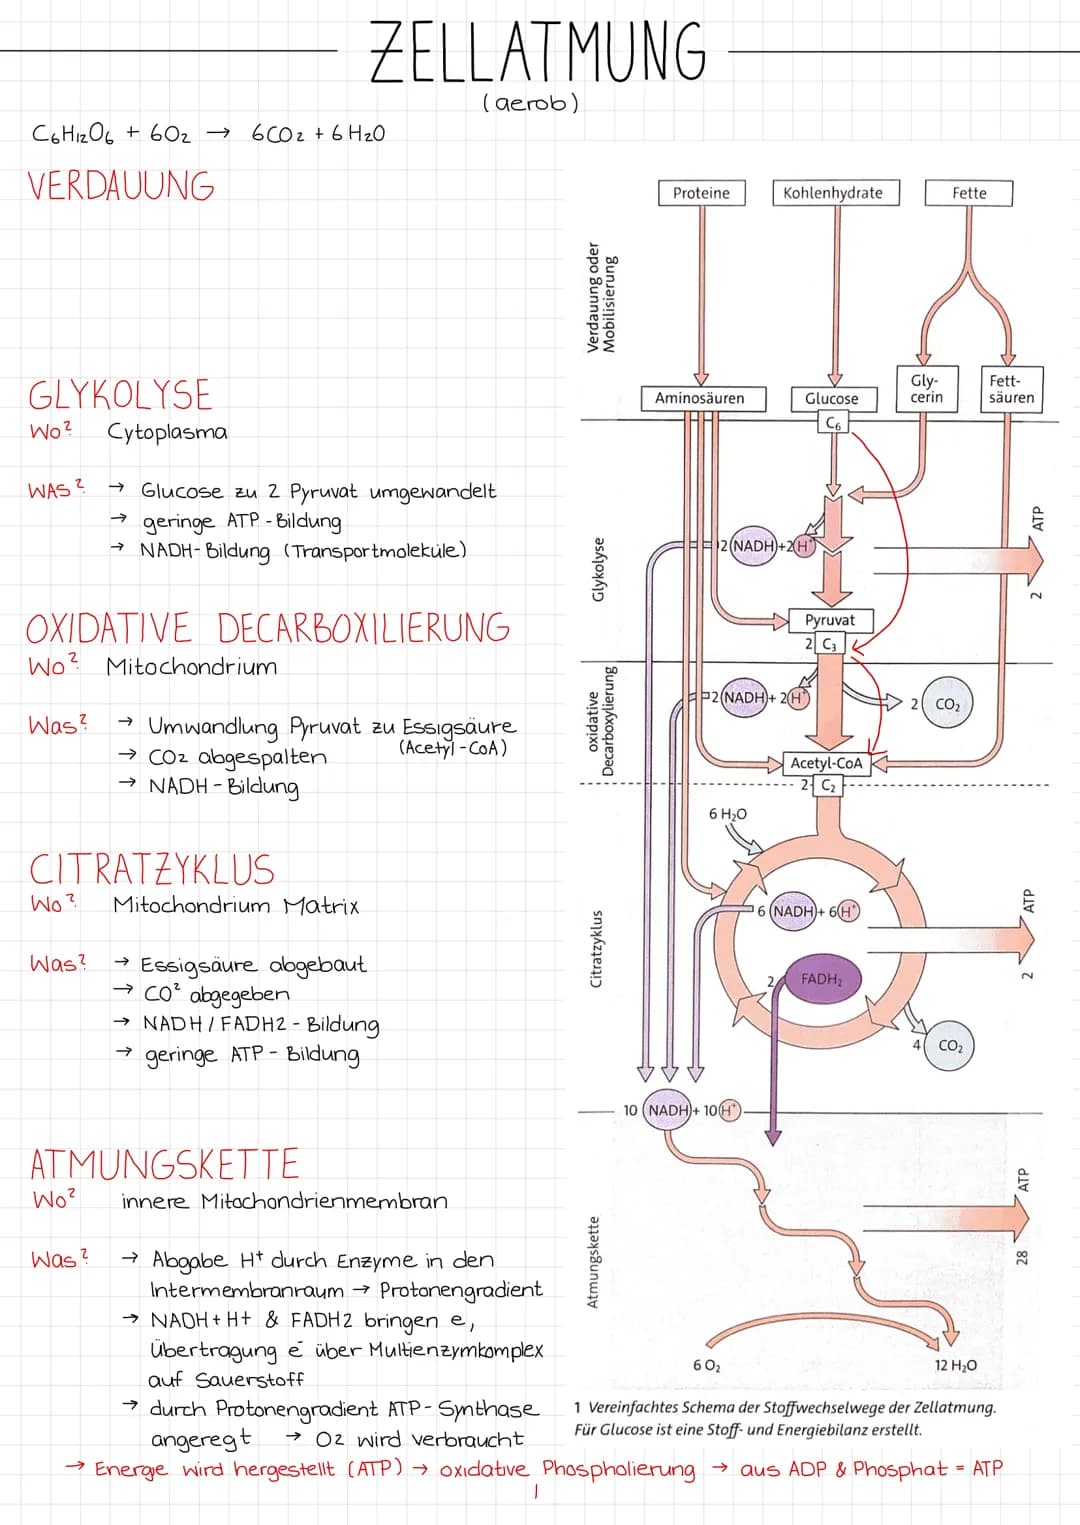 ZELLATMUNG
(aerob)
C6H12O6 + 6O2 → 6CO2 + 6H2O
VERDAUUNG
GLYKOLYSE
Wo? Cytoplasma
WAS? → Glucose zu 2 Pyruvat umgewandelt
→ geringe ATP-Bildung
→ NADH-Bildung (Transportmoleküle)
OXIDATIVE DECARBOXILIERUNG
Wo? Mitochondrium
Was? → Umwandlung Pyruvat zu Essigsäure
(Acetyl-CoA)
→ CO2 abgespalten
→ NADH-Bildung
CITRATZYKLUS
Wo? Mitochondrium Matrix
Was? → Essigsäure abgebaut
→ CO² abgegeben
→ NADH/FADH2-Bildung
→ geringe ATP-Bildung
ATMUNGSKETTE
Wo? innere Mitochondrienmembran
Was? → Abgabe H+ durch Enzyme in den
Intermembranraum → Protonengradient
→ NADH+H+ & FADH2 bringen e,
Übertragung e⁻ über Multienzymkomplex
auf Sauerstoff
→ durch Protonengradient ATP-Synthase
angeregt → O2 wird verbraucht
→ Energie wird hergestellt (ATP) → oxidative Phospholierung → aus ADP & Phosphat = ATP
Proteine Kohlenhydrate Fette
Verdauung oder
Mobilisierung
Aminosäuren Glucose Gly-
cerin Fett-
säuren
C₆
Glykolyse
2 NADH + 2 H⁺
2 ATP
Pyruvat
2 C₃
oxidative
Decarboxylierung
2 NADH + 2 H⁺
2 CO₂
Acetyl-CoA
2 C₂
6 H₂O
Citratzyklus
6 NADH + 6 H⁺
2 ATP
2 FADH₂
4 CO₂
10 NADH + 10 H⁺
Atmungskette
28 ATP
6 O₂ 12 H₂O
1 Vereinfachtes Schema der Stoffwechselwege der Zellatmung.
Für Glucose ist eine Stoff- und Energiebilanz erstellt.